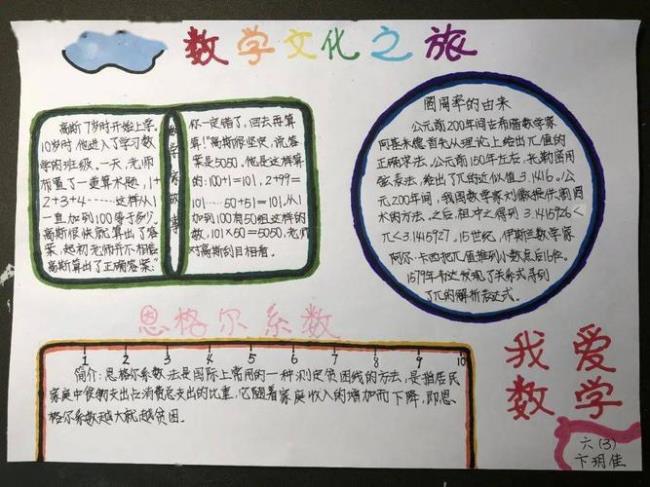 数学文化之旅
高斯7岁时开始上学。
10岁时他进入了学习数
学的班级。一天,老师
布置了一道算术题,1+
2+3+4……这样从1
一直加到100等于多少。
高斯很快就算出了答
案,起初老师并不相信
高斯算出了正确答案:
数学家故事
你一定错了,回去再算
算!"高斯非常坚定,说答
案是5050,他是这样算
的:100+1=101,2+99=
101……50+51=101,从1
加到100有50组这样的
数,101×50=5050,老师
对高斯刮目相看。
圆周率的由来
公元前200年间古希腊数学家
阿基米德首先从理论上给出π值的
正确求法。公元前150年左右,
弦表法,给出了π的近似值3.1416。公
元200年间,我国数学家刘徽提供割圆
术的方法,之后,祖冲之得到3.1415926<
π<3.1415927,15世纪,伊斯兰数学家
阿尔·卡西把π值推到小数点后16位。
1579年韦达发现了关系式得到
了π的解析表达式。
恩格尔系数
1 2 3 4 5 6 7 8 9 10
简介:恩格尔系数法是国际上常用的一种测定贫困线的方法,是指居民
家庭中食物支出占消费总支出的比重,它随着家庭收入的增加而下降,即恩
格尔系数越大就越贫困。
我爱
数学
六(3)
卞玥佳